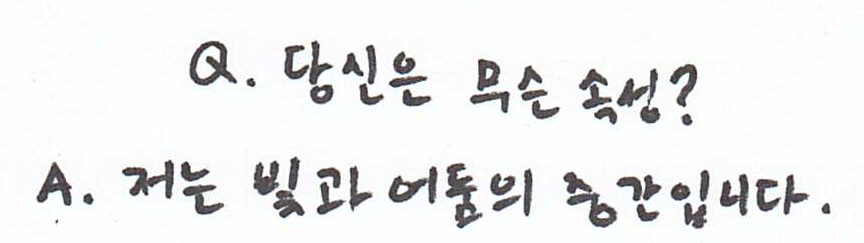 Q. 당신은 무슨 속성?
A. 저는 빛과 어둠의 중간입니다.